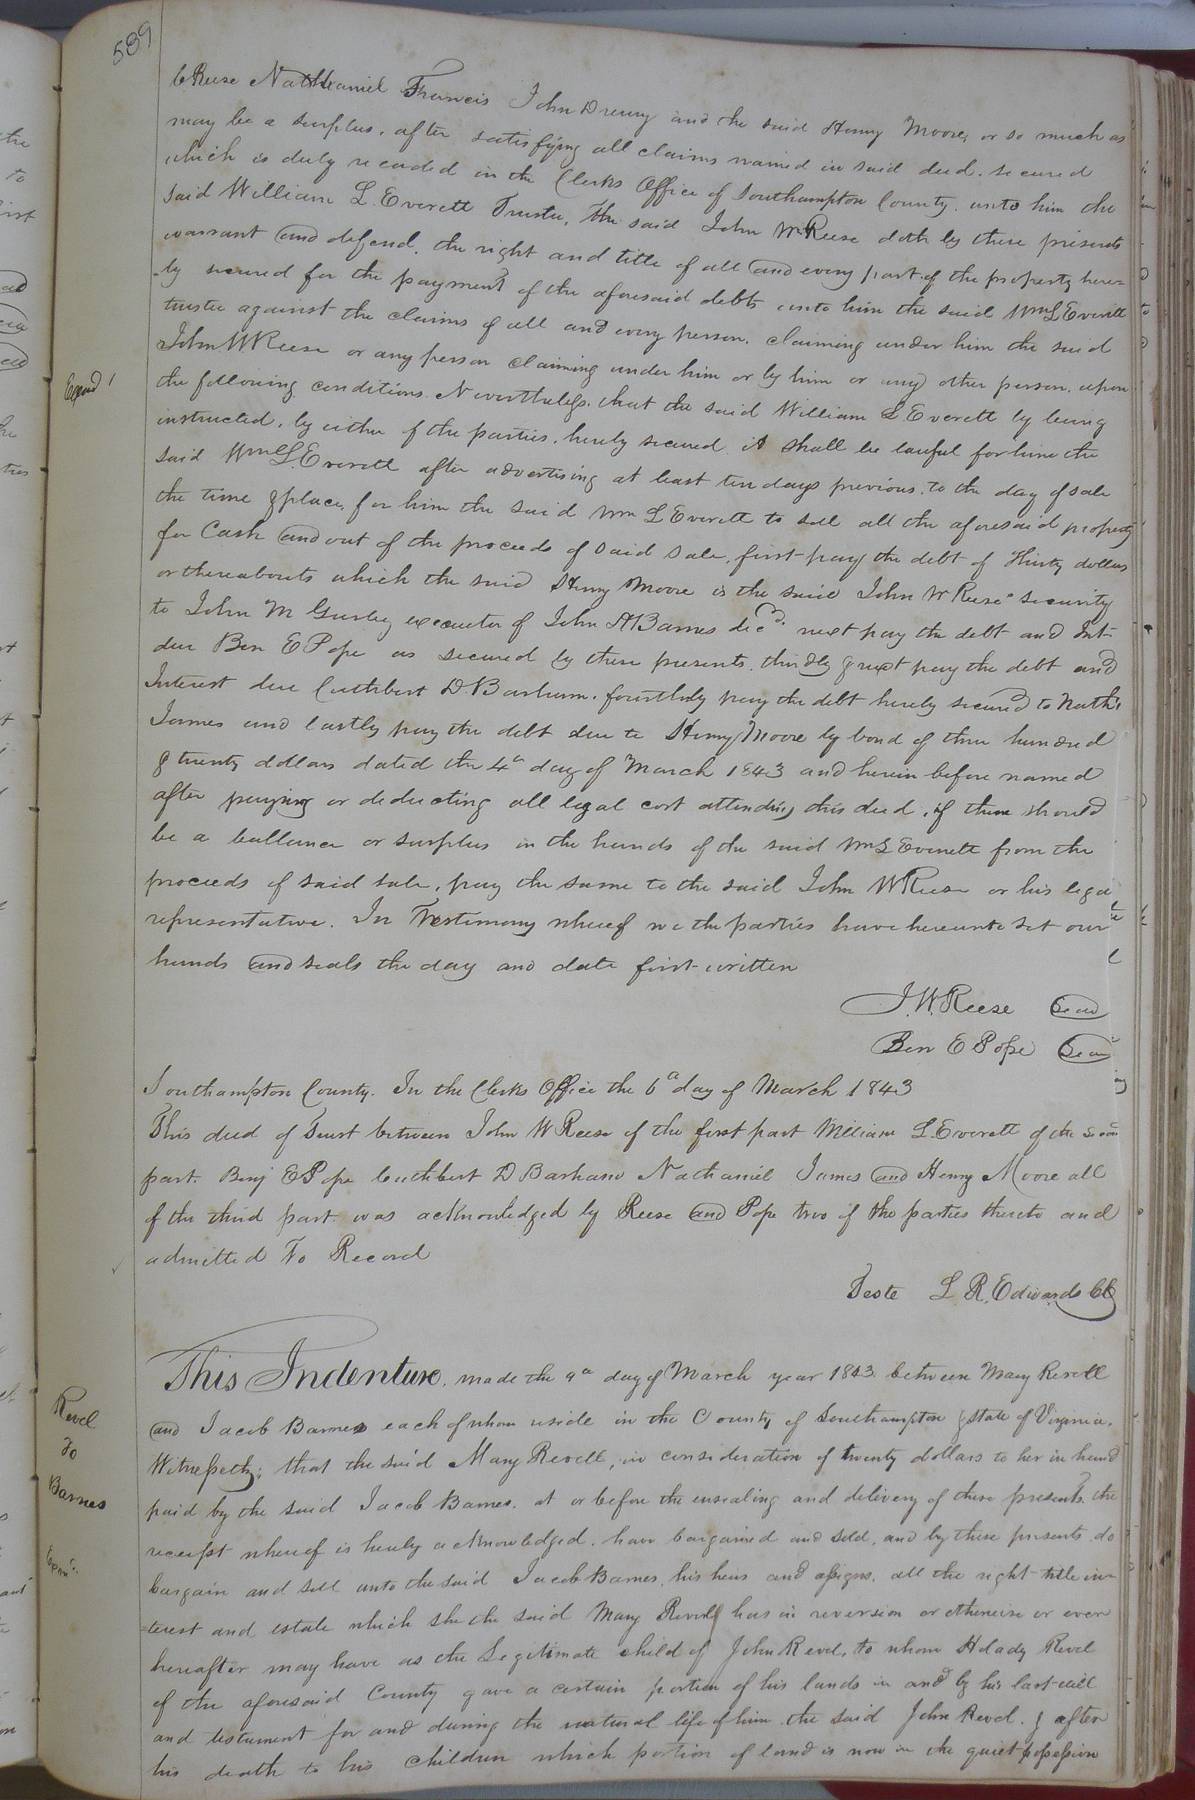 539
Reese Nathaniel Francis John Drewry and the said Henry Moore, or so much as
may be a surplus, after satisfying all claims named in said deed. secured
which is duly recorded in the Clerks Office of Southampton County. unto him the
said William L. Everett Trustee, the said John W Reese doth by these presents
warrant and defend, the right and title of all and every part of the property here=
=by secured for the payment of the aforesaid debts unto him the said Wm L Everett
trustee against the claims of all and every person, claiming under him the said
John W Reese or any person claiming under him or by him or any other person. upon
the following conditions Nevertheless. that the said William L Everett by being
instructed, by either of the parties. hereby secured it shall be lawful for him the
said Wm L Everett after advertising at least ten days previous. to the day of sale
the time & place, for him the said Wm L Everett to sell all the aforesaid property
for Cash and out of the proceeds of said sale, first pay the debt of Thirty dollars
or thereabouts which the said Henry Moore is the said John W Reese' security
to John M Gurley executor of John A Barnes decd. next pay the debt and Int.
due Ben E Pope as secured by these presents. thirdly & next pay the debt and
Interest due Cuthbert D Barham. fourthly pay the debt hereby secured to Nathl
James and lastly pay the debt due to Henry Moore by bond of three hundred
& twenty dollars dated the 4th day of March 1843 and herein before named
after paying or deducting all legal cost attending this deed, if there should
be a ballance or surplus in the hands of the said Wm L Everett from the
proceeds of said sale, pay the same to the said John W Reese or his legal
representative. In Testimony whereof we the parties have hereunto set our
hands and seals the day and date first written
J. W. Reese Seal
Ben E Pope Seal
Southampton County. In the Clerks Office the 6th day of March 1843
This deed of Trust between John W Reese of the first part William L. Everett of the
part. Benj E Pope Cuthbert D Barham Nathaniel James and Henry Moore all
of the third part was acknowledged by Reese and Pope two of the parties thereto and
admitted To Record
Teste L. R. Edwards Clk
Exand
Revel
To
Barnes
Exand.
This Indenture, made the 9th day of March year 1843 between Mary Revell
and Jacob Barnes each of whom reside in the County of Southampton & state of Virginia.
Witnesseth; that the said Mary Revell, in consideration of twenty dollars to her in hand
paid by the said Jacob Barnes. at or before the ensealing and delivery of these presents. the
receipt whereof is hereby acknowledged. have bargained and sold, and by these presents do
bargain and sell unto the said Jacob Barnes, his heirs and assigns. all the right title in=
=terest and estate which she the said Mary Revell has in reversion or otherwise or ever
hereafter may have as the Legitimate child of John Revel, to whom Holady Revel
of the aforesaid County gave a certain portion of his lands in and by his last will
and testament for and during the natural life of him the said John Revel. & after
his death to his children which portion of land is now in the quiet possession